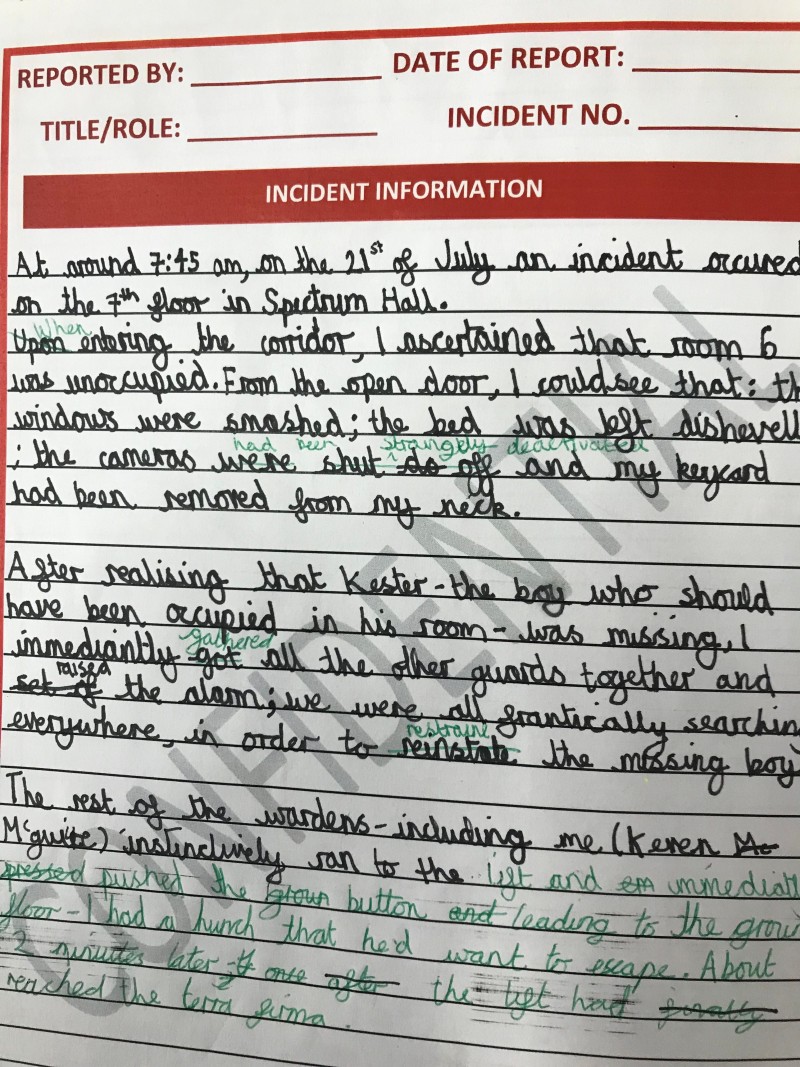 REPORTED BY: DATE OF REPORT:
TITLE/ROLE: INCIDENT NO.
INCIDENT INFORMATION
At around 7:45 am, on the 21st of July an incident occured
on the 7th floor in Spectrum Hall.
When
Upon entering the corridor, I ascertained that room 6
was unoccupied. From the open door, I could see that: th
windows were smashed; the bed was left dishevell
had been strangely deactivated
; the cameras were shut do off and my keycard
had been removed from my neck.
After realising that Kester - the boy who should
have been occupied in his room - was missing, I
gathered
immediantly got all the other guards together and
raised
set of the alarm; we were all frantically searchin
restraine
everywhere, in order to reinstate the missing boy
The rest of the wardens - including me (Keren Mc
McGuire) instinctively ran to the lift and em immediatl
pressed pushed the button and leading to the groun
floor - I had a hunch that he'd want to escape. About
2 minutes later, once after the lift had finally
reached the terra firma.
CONFIDENTIAL